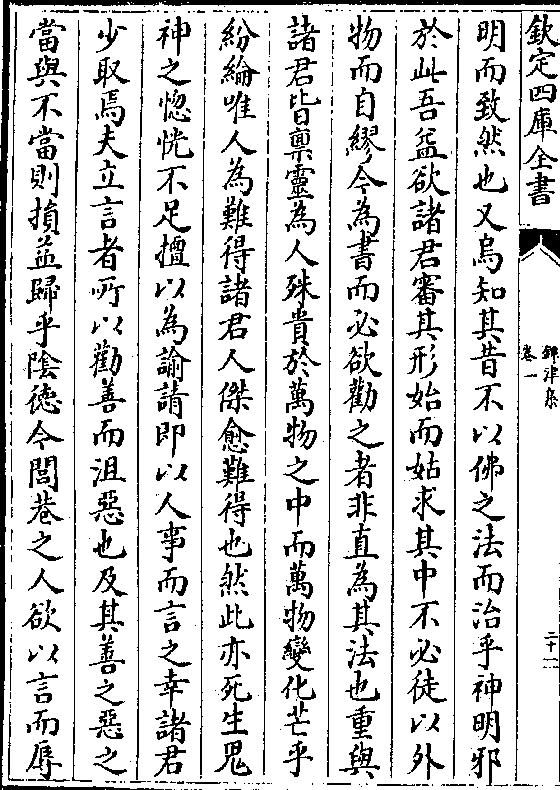 欽定四庫全書
鐔津集
卷一
二十一
明而致然也又烏知其昔不以佛之法而治乎神明邪
於此吾益欲諸君審其形始而姑求其中不必徒以外
物而自繆今為書而必欲勸之者非直為其法也重與
諸君皆禀靈為人殊貴於萬物之中而萬物變化芒乎
紛綸唯人為難得諸君人傑愈難得也然此亦死生鬼
神之惚恍不足擅以為諭請即以人事而言之幸諸君
少取焉夫立言者所以勸善而沮惡也及其善之惡之
當與不當則損益歸乎陰德今閭巷之人欲以言而辱